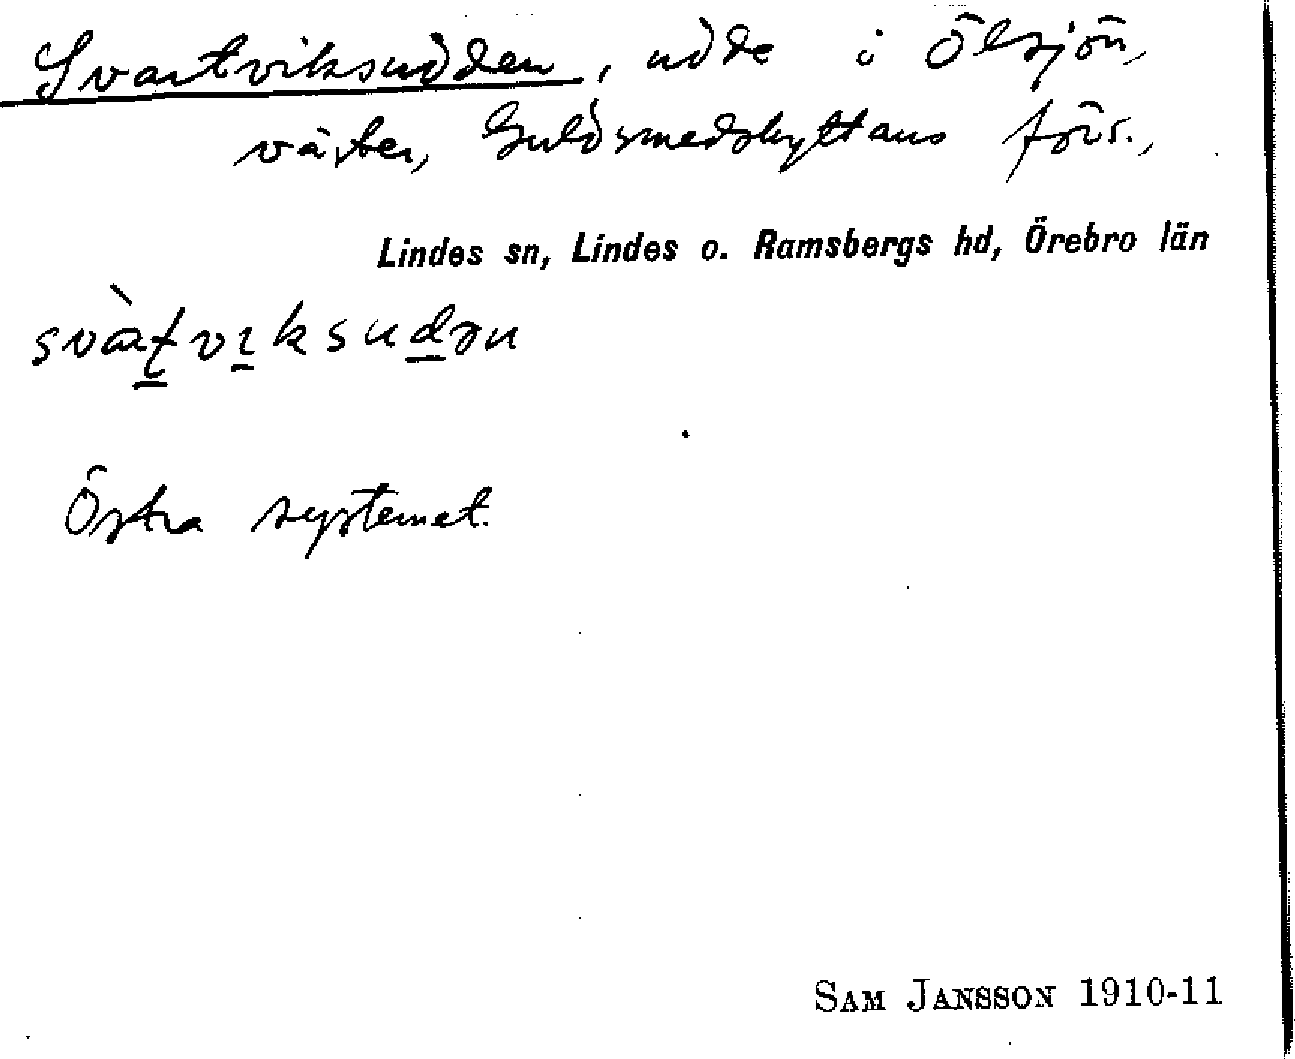 Svartviksudden, udde i Ölsjön,
väster, Guldsmedshyttans förs.,
Lindes sn, Lindes o. Ramsbergs hd, Örebro län
Östra systemet.
SAM JANSSON 1910-11